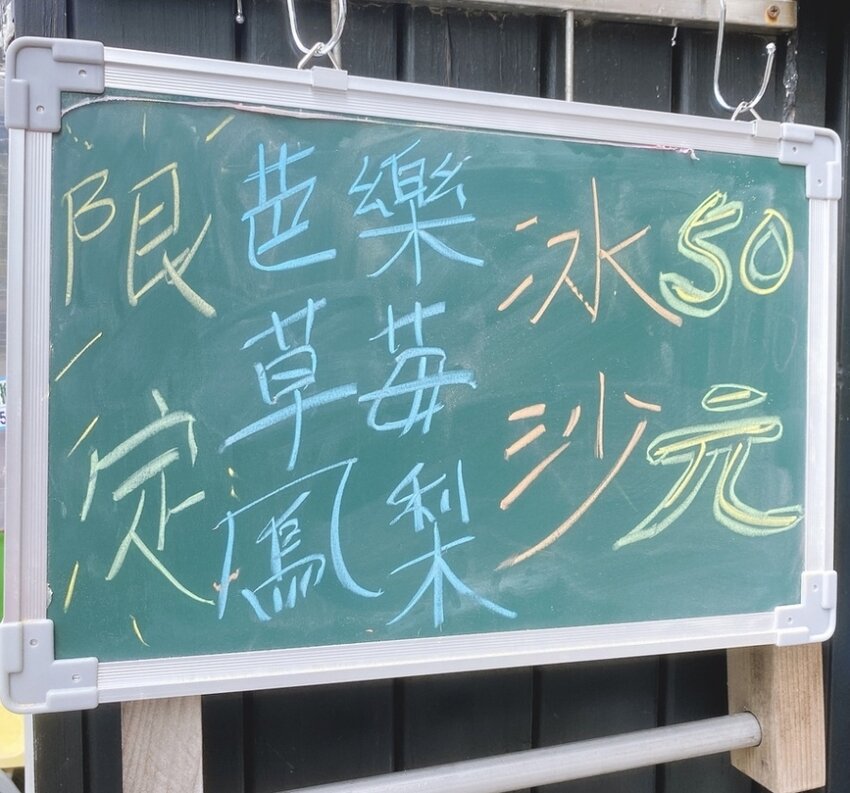 限定
芭樂
草莓
鳳梨
冰沙
50元